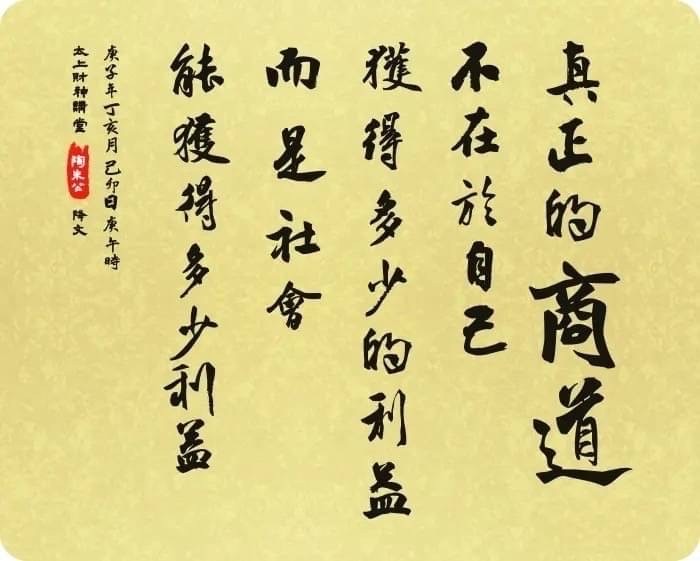 真正的商道
不在於自己
獲得多少的利益
而是社會
能獲得多少利益
庚子年丁亥月己卯日庚午時
太上財神講堂 陶朱公 降文